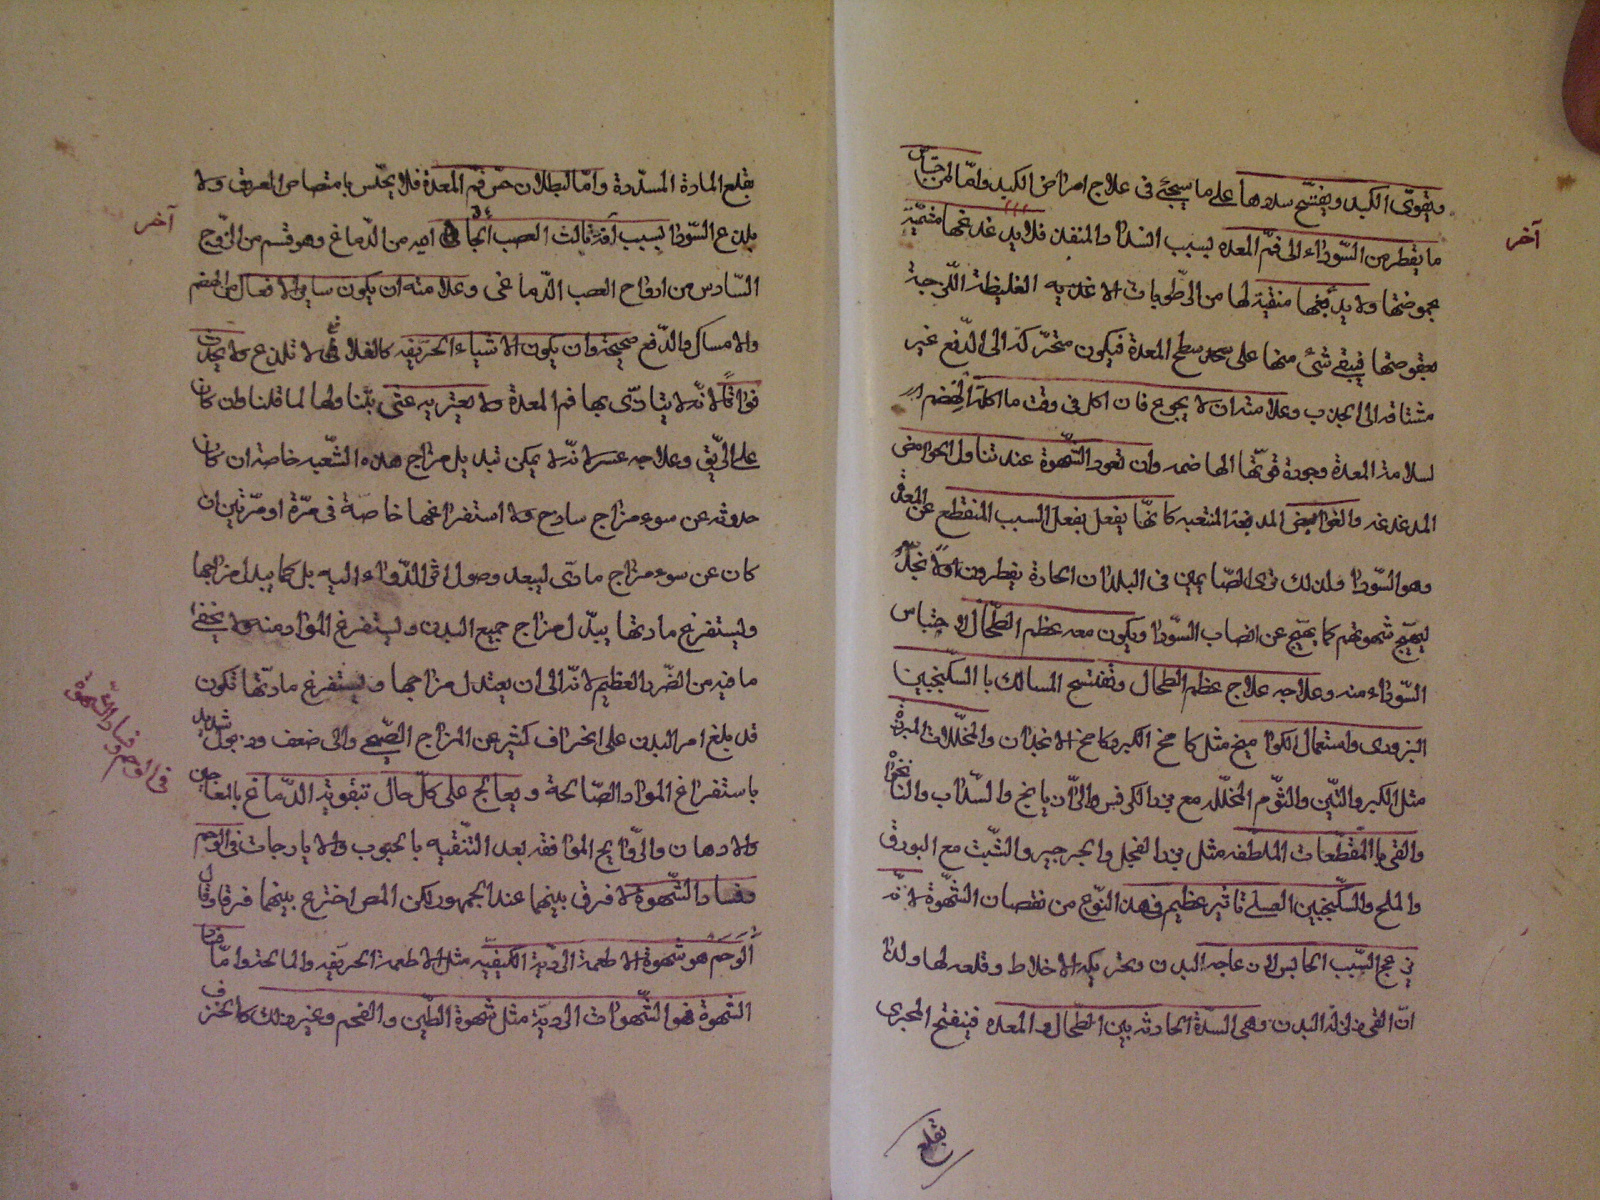 ويقوى الكبد ويفتح سددها على ما سيجئ فى علاج امراض الكبد واما لمن احتباس
آخر
ما يقطر من السوداء الى فم المعده بسبب السدة والمنفذ فلا يدغدغها مثمة
بحموضتها ولا يدبغها منقية لها من الرطوبات الاغذيه الغليظة اللزجة
بعفوصتها فيبقى شئ منها على سطح المعدة فيكون متحركة الى الدفع غير
مشتاقه الى الجذب وعلامته ان لا يجوع فان اكل فى وقت ما اكله الهضم
لسلامة المعدة وجودة قوتها الهاضمه وان تعود الشهوة عند تناول الحوامض
المدغدغه والقوابض المدبغة المنتعبه كانها يفعل بفعل السبب المنقطع عن المعدة
وهو السودا ولذلك ترى الصايمين فى البلدان الحارة يفطرون اولا بخل
ليهيج شهوتهم كما يهيج عن انصاب السودا ويكون معه عظم الطحال لاحتباس
السوداء منه وعلاجه علاج عظم الطحال وتفتيح المسالك با السكنجبين
البزورى واستعمال الكواميخ مثل كامخ الكبر وكامخ الانجدان والمخللات المبزرة
مثل الكبر والتين والثوم المخلله مع بزر الكرفس والرازيانج والسذاب والنانخواه
والقى با المقطعات الملطفه مثل بزر الفجل والجرجير والشبث مع البورق
والملح والسكنجبين العسلى تاثير عظيم فى هذا النوع من نقصان الشهوة لانه
يزعج السبب الحابس لازعاجه البدن وتحريكه الاخلاط وقلعه لها ولذا
ان القى يزلزل البدن وهى السدة الحادثه بين الطحال والمعده فينفتح المجرى
بقلع
بقلع المادة المسددة واما لبطلان حس فم المعدة فلا يحس بامتصاص العروق ولا
آخر
بلذع السودا بسبب آفة نالت العصب الجائى اليه من الدماغ وهو قسم من الزوج
السادس من ازواح العصب الدماغى وعلامته ان يكون ساير الافعال من الهضم
والامساك والدفع صحيحة وان يكون الاشياء الحريفه كالفلافلى لا تلذع ولا يحدث
فواقا لانه لا يتاذى بها فم المعدة ولا يعتريه غثى بتناولها لما قلنا وان كان
على الريق وعلاجه عسر لانه لا يمكن تبديل مزاج هذه الشعبه خاصة ان كان
حدوثه عن سوء مزاج سادج ولا استفراغها خاصة فى مرة او مرتين ان
كان عن سوء مزاج مادى لبعد وصول اثر الدواء اليه بل كما يبدل مزاجها
ويستفرغ مادتها يبدل مزاج جميع البدن ويستفرغ المواد منه ولا يخفى
ما فيه من الضرر العظيم لانه الى ان يعتدل مزاجها ويستفرغ مادتها تكون
قد بلغ امر البدن على انحراف كثير عن المزاج الصحى والى ضعف شديد
باستفراغ المواد الصالحة ويعالج على كل حال تبقويته الدماغ بالمعاجين
والادهان والروايح الموافقه بعد التنقيه بالحبوب والايارجات فى الوحم
وفساد الشهوة لا فرق بينهما عند الجمهور لكن المص اخترع بينهما فرقا وقال
الوحم هو شهوة الاطعمة الردية الكيفيه مثل الاطعمة الحريفه والمالحة واما فساد
الشهوة فهو الشهوات الردية مثل شهوة الطين والفحم وغير ذلك كالخزف
فى الوحم وفساد الشهوة